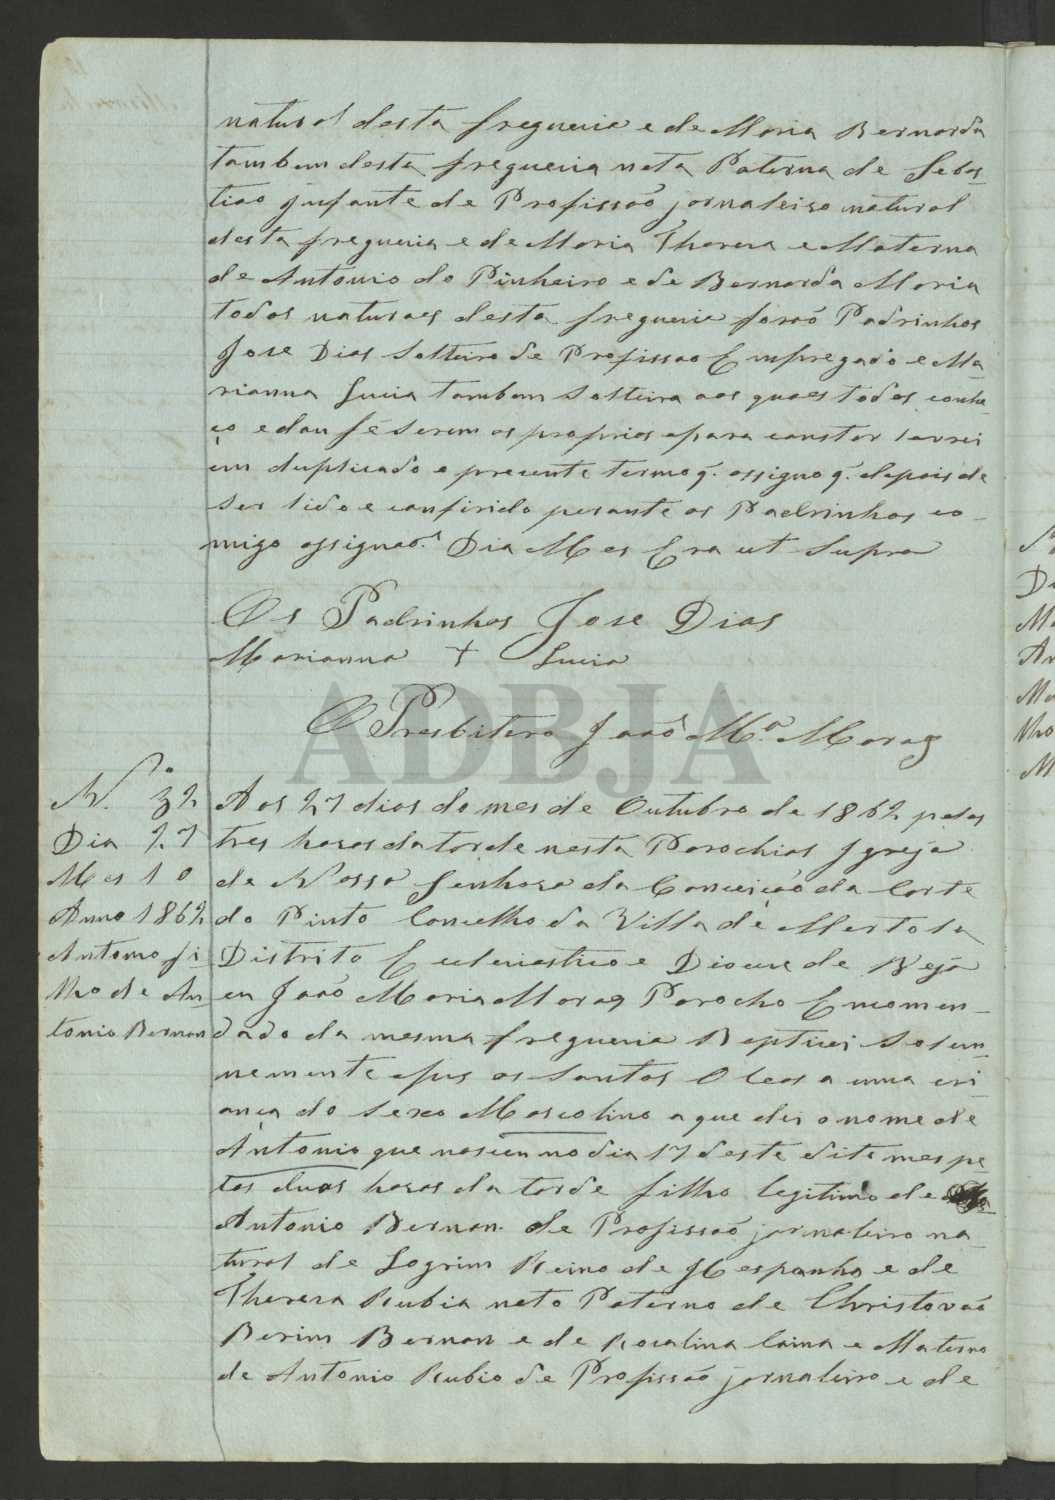 natural desta freguecia e de Maria Bernarda
tambem desta freguecia neta Paterna de Sebas-
tiaõ Jnfante de Profissaõ jornaleiro natural
desta freguecia e de Maria Thereza e Materna
de Antonio do Pinheiro e de Bernarda Maria
todos naturaes desta freguecia foraõ Padrinhos
Jose Dias Solteiro de Profissaõ Empregado e Ma-
rianna Lucia tambem Solteira aos quaes todos conhe-
ço e dou fé Serem os proprios e para constar lavrei
em duplicado o prezente termo q. assigno q. depois de
Ser lido e confirido perante os Padrinhos co-
migo assignaõ. Dia Mes Era ut Supra
Os Padrinhos Jose Dias
Marianna + Lucia
O Presbitero Joaõ M.ª Moraes
ADBJA
N.º 32
Dia 27
Mes 10
Anno 1862
Antonio fi-
lho de An-
tonio Bernan
Aos 27 dias do mes de Outubro de 1862 pelas
tres horas da tarde nesta Parochial Jgreja
de Nossa Senhora da Conceiçaõ da Corte
do Pinto Concelho da Villa de Mertola
Distrito Ecleziastico e Diocese de Beja
eu Joaõ Maria Moraes Parocho Encomen-
dado da mesma freguecia Baptizei Solem-
nemente e puz os Santos Oleos a uma cri-
ança do Sexo Mascolino a que dei o nome de
Antonio que nasceu no dia 17 deste dito mes pe-
las duas horas da tarde filho legitimo de
Antonio Bernan de Profissaõ jornaleiro na-
tural de Reino de Hespanha e de
Thereza Rubia neto Paterno de Christovaõ
Berim Bernan e de Rozalina e Materno
de Antonio Rubio de Profissaõ jornaleiro e de